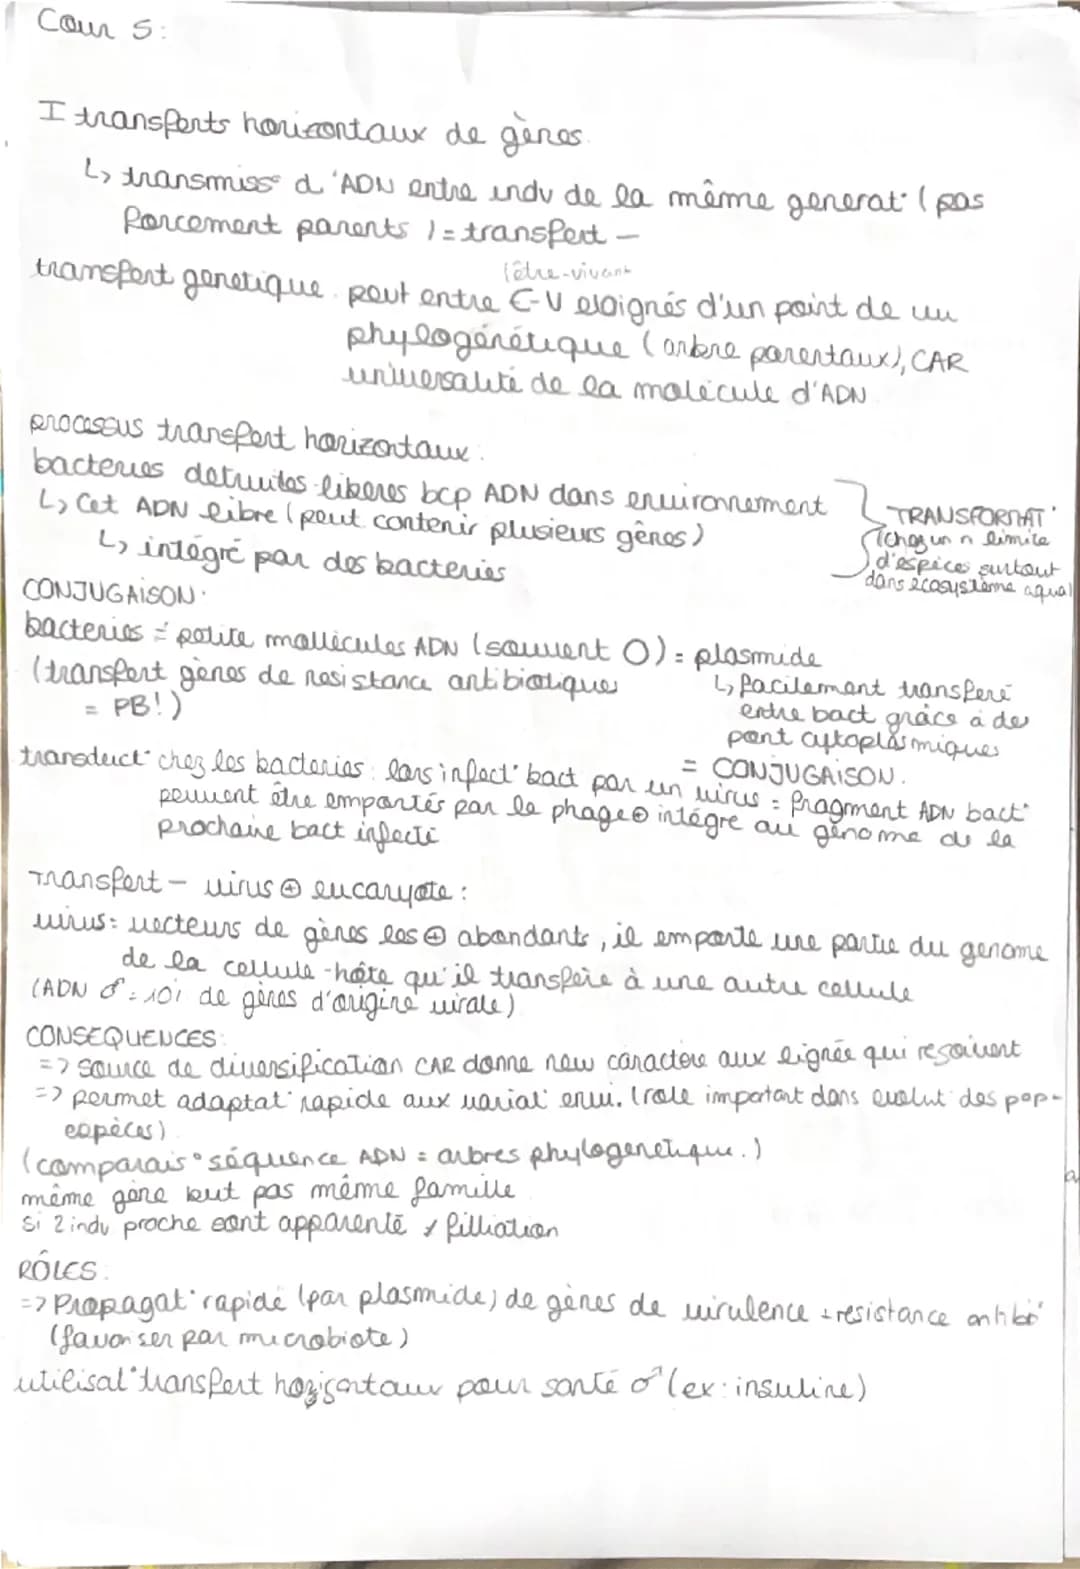 Cour 5:
I transferts horizontaux de gènes.
↳ transmiss° d'ADN entre indv de la même generat° (pas
forcement parents) = transfert —
(être-vivant
transfert genetique peut entre E-V eloignés d'un point de vu
phylogénétique (arbre parentaux), CAR
universalité de la molécule d'ADN
processus transfert horizontaux:
bacteries detruites liberes bcp ADN dans environnement
↳ Cet ADN libre (peut contenir plusieurs gênes)
↳ intégré par des bacteries
TRANSFORMAT°
n limite
d'espèces surtout
dans ecosystème aquat
CONJUGAISON:
bacteries = petite mollécules ADN (souvent O) = plasmide
(transfert gènes de resistance antibiotiques
= PB!)
↳ facilement transféré
entre bact grâce a des
pont cytoplasmiques
= CONJUGAISON.
transduct° chez les bacteries: lors infect° bact par un virus = fragment ADN bact°
peuvent être emportés par le phage ⊕ intégre au génome de la
prochaine bact infecté
Transfert — virus ⊕ eucaryote:
virus: vecteurs de gènes les ⊕ abondants, il emporte une partie du genome
de la cellule-hôte qu'il transfère à une autre cellule
(ADN ♂ = 10% de gènes d'origine virale)
CONSEQUENCES:
=> source de diversification CAR donne new caractère aux lignée qui reçoivent
=> permet adaptat° rapide aux variat° envi. (role important dans evolut° des pop-
espèces)
(comparais° séquence ADN = arbres phylogenetique.)
même gène veut pas même famille
si 2 indv proche sont apparenté filliation
RÔLES:
=> Propagat° rapide (par plasmide) de gènes de virulence + resistance antibio
(favoriser par microbiote)
utilisat° transfert horizontaux pour santé ♂ (ex: insuline)